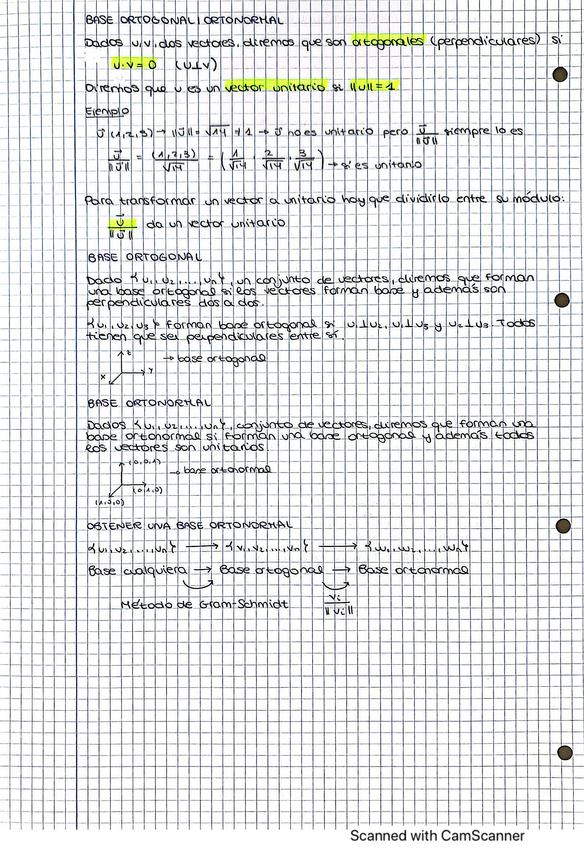 BASE ORTOGONAL | ORTONORMAL
Dados u,v, dos vectores, diremos que son ortogonales (perpendiculares) si
u·v = 0 (u⊥v)
Diremos que u es un vector unitario si ||u|| = 1
Ejemplo
u⃗ (1,2,3) → ||u⃗|| = √14 ≠ 1 → u⃗ no es unitario pero u⃗/||u⃗|| siempre lo es
u⃗/||u⃗|| = (1,2,3)/√14 = (1/√14, 2/√14, 3/√14) → sí es unitario
Para transformar un vector a unitario hay que dividirlo entre su módulo:
u⃗/||u⃗|| da un vector unitario
BASE ORTOGONAL
Dado {u₁, u₂, ..., un}, un conjunto de vectores, diremos que forman
una base ortogonal si los vectores forman base y además son
perpendiculares dos a dos.
{u₁, u₂, u₃} forman base ortogonal si u₁⊥u₂, u₁⊥u₃ y u₂⊥u₃. Todos
tienen que ser perpendiculares entre sí.
z
→ base ortogonal
x y
BASE ORTONORMAL
Dados {u₁, u₂, ..., un}, conjunto de vectores, diremos que forman una
base ortonormal si forman una base ortogonal y además todos
los vectores son unitarios
(0,0,1)
→ base ortonormal
(0,1,0)
(1,0,0)
OBTENER UNA BASE ORTONORMAL
{u₁, u₂, ..., un} → {v₁, v₂, ..., vn} → {w₁, w₂, ..., wn}
Base cualquiera → Base ortogonal → Base ortonormal
Método de Gram-Schmidt vi/||vi||
Scanned with CamScanner